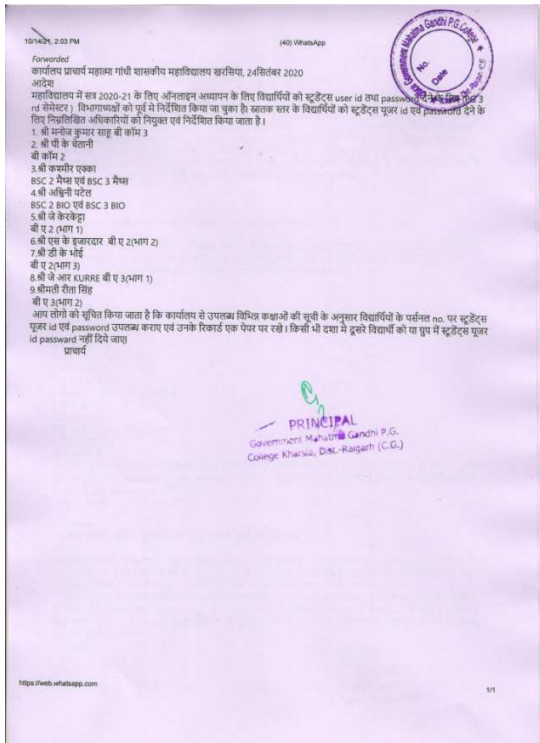 10/14/21, 2:03 PM
(40) WhatsApp
Forwarded
कार्यालय प्राचार्य महात्मा गांधी शासकीय महाविद्यालय खरसिया, 24सितंबर 2020
आदेश
महाविद्यालय में सत्र 2020-21 के लिए ऑनलाइन अध्यापन के लिए विद्यार्थियों को स्टूडेंट्स user id तथा password देने के लिए 3
rd सेमेस्टर ) विभागाध्यक्षों को पूर्व मे निर्देशित किया जा चुका है। स्नातक स्तर के विद्यार्थियों को स्टूडेंट्स यूजर id एवं password देने के
लिए निम्नलिखित अधिकारियों को नियुक्त एवं निर्देशित किया जाता है।
1. श्री मनोज कुमार साहू बी कॉम 3
2. श्री पी के चेतानी
बी कॉम 2
3.श्री कश्मीर एक्का
BSC 2 मैथ्स एवं BSC 3 मैथ्स
4.श्री अश्विनी पटेल
BSC 2 BIO एवं BSC 3 BIO
5.श्री जे केरकेट्टा
बी ए 2 (भाग 1)
6.श्री एस के इजारदार बी ए 2(भाग 2)
7.श्री डी के भोई
बी ए 2(भाग 3)
8.श्री जे आर KURRE बी ए 3(भाग 1)
9.श्रीमती रीता सिंह
बी ए 3(भाग 2)
आप लोगो को सूचित किया जाता है कि कार्यालय से उपलब्ध विभिन्न कक्षाओं की सूची के अनुसार विद्यार्थियों के पर्सनल no. पर स्टूडेंट्स
यूजर id एवं password उपलब्ध कराए एवं उनके रिकार्ड एक पेपर पर रखे। किसी भी दशा मे दूसरे विद्यार्थी को या ग्रुप में स्टूडेंट्स यूजर
id passward नहीं दिये जाए।
प्राचार्य
PRINCIPAL
Government Mahatma Gandhi P.G.
College Kharsia, Dist.-Raigarh (C.G.)
Government Mahatma Gandhi P.G. College
No.
Date
https://web.whatsapp.com
1/1